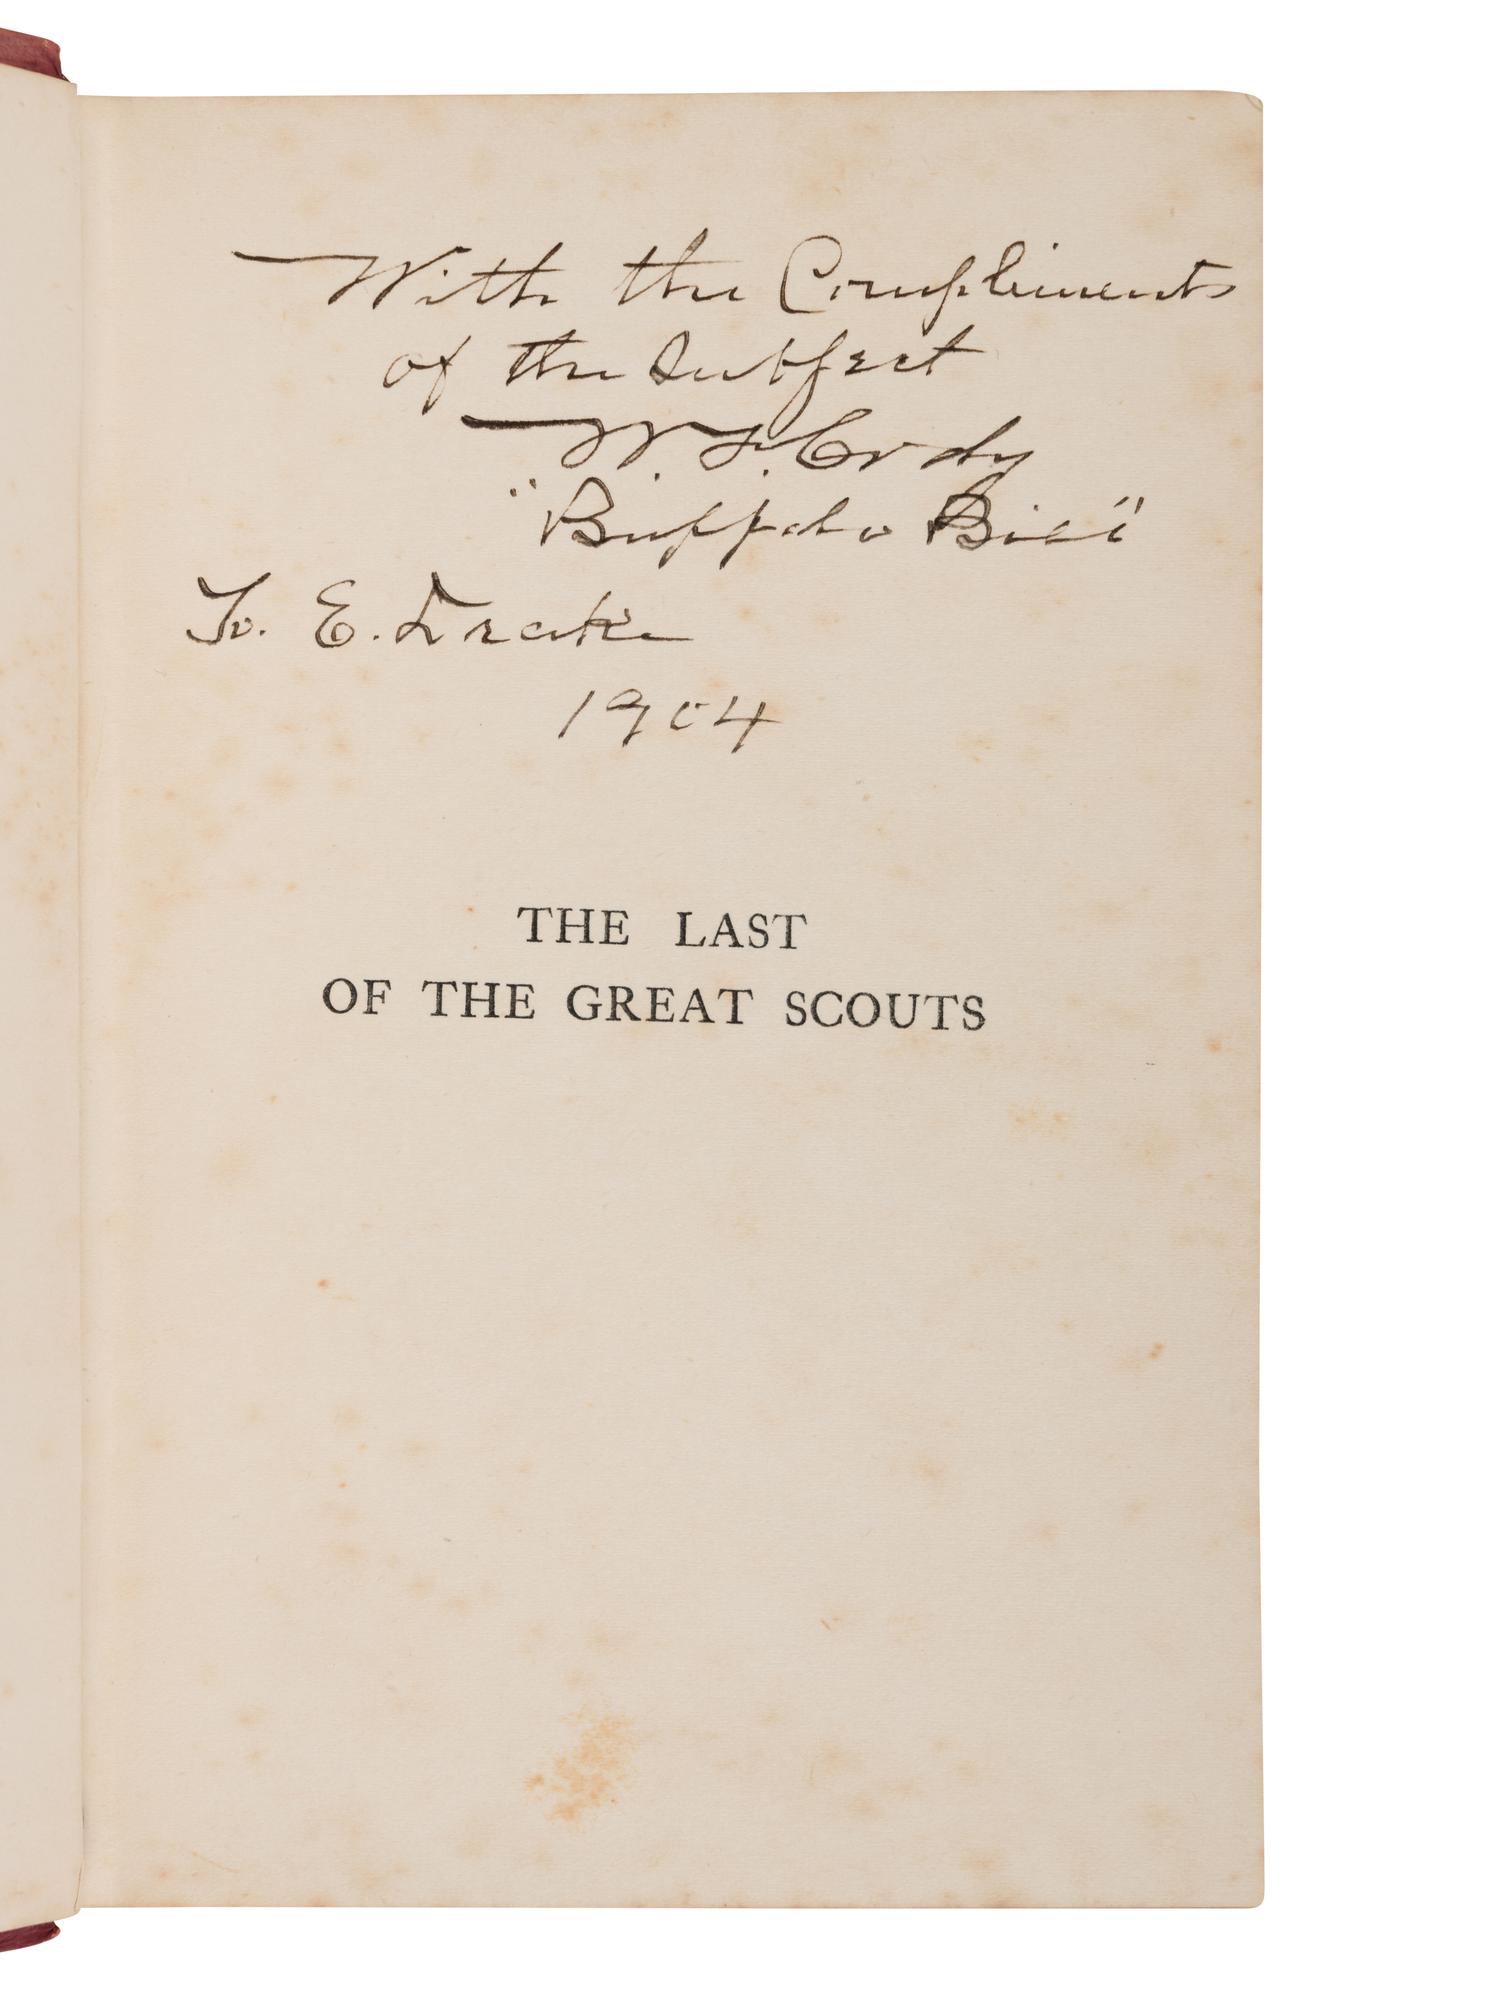 With the Compliments
of the Subject
W. F. Cody
"Buffalo Bill"
To. E. Drake
1904
THE LAST
OF THE GREAT SCOUTS